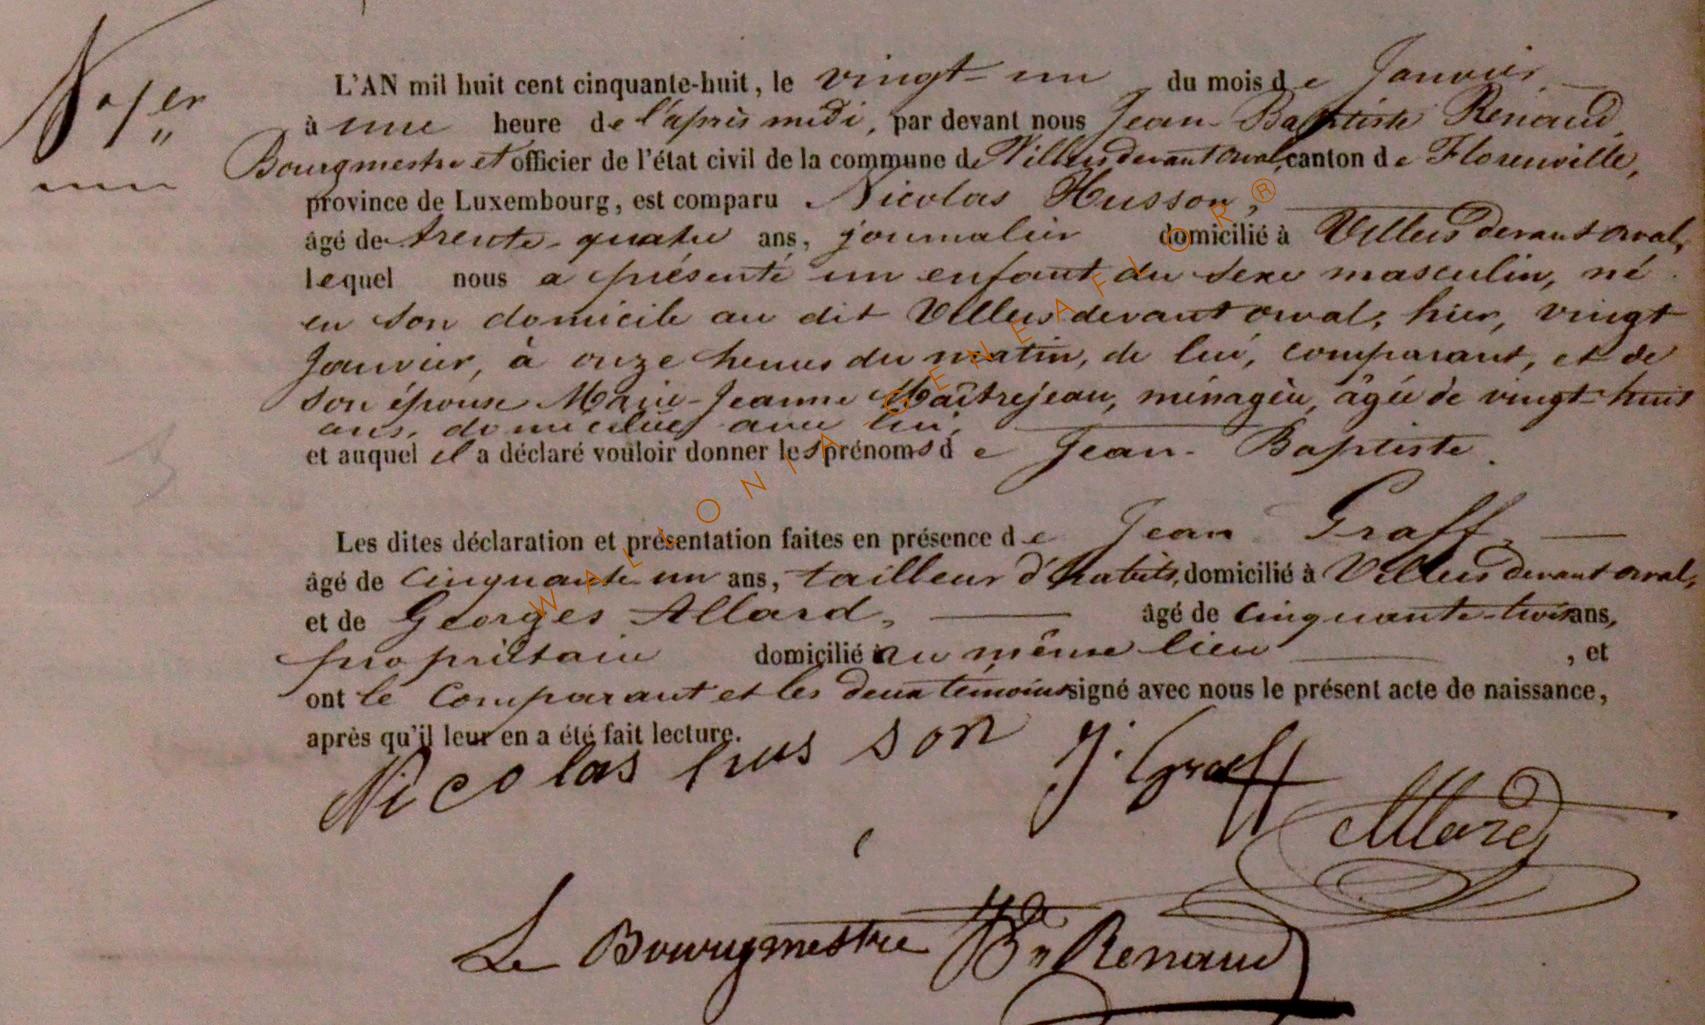 N° 1er
L'AN mil huit cent cinquante-huit, le vingt-un du mois de Janvier
à une heure de l'après midi, par devant nous Jean-Baptiste Renaud,
Bourgmestre et officier de l'état civil de la commune de Villers devant orval, canton de Florenville,
province de Luxembourg, est comparu Nicolas Husson,
âgé de trente-quatre ans, journalier domicilié à Villers devant orval,
lequel nous a présenté un enfant du sexe masculin, né
en son domicile au dit Villers devant orval, hier, vingt
Janvier, à onze heures du matin, de lui, comparant, et de
son épouse Marie-Jeanne Maîtrejean, ménagère, âgée de vingt-huit
ans, domiciliée avec lui,
et auquel il a déclaré vouloir donner les prénoms de Jean-Baptiste.
Les dites déclaration et présentation faites en présence de Jean Graff,
âgé de cinquante un ans, tailleur d'habits, domicilié à Villers devant orval,
et de Georges Allard, âgé de cinquante-trois ans,
propriétaire domicilié au même lieu, et
ont le comparant et les deux témoins signé avec nous le présent acte de naissance,
après qu'il leur en a été fait lecture.
Nicolas husson J. Graff
Allard
Le Bourgmestre Renaud
WALLONIA GENEAFLOR®